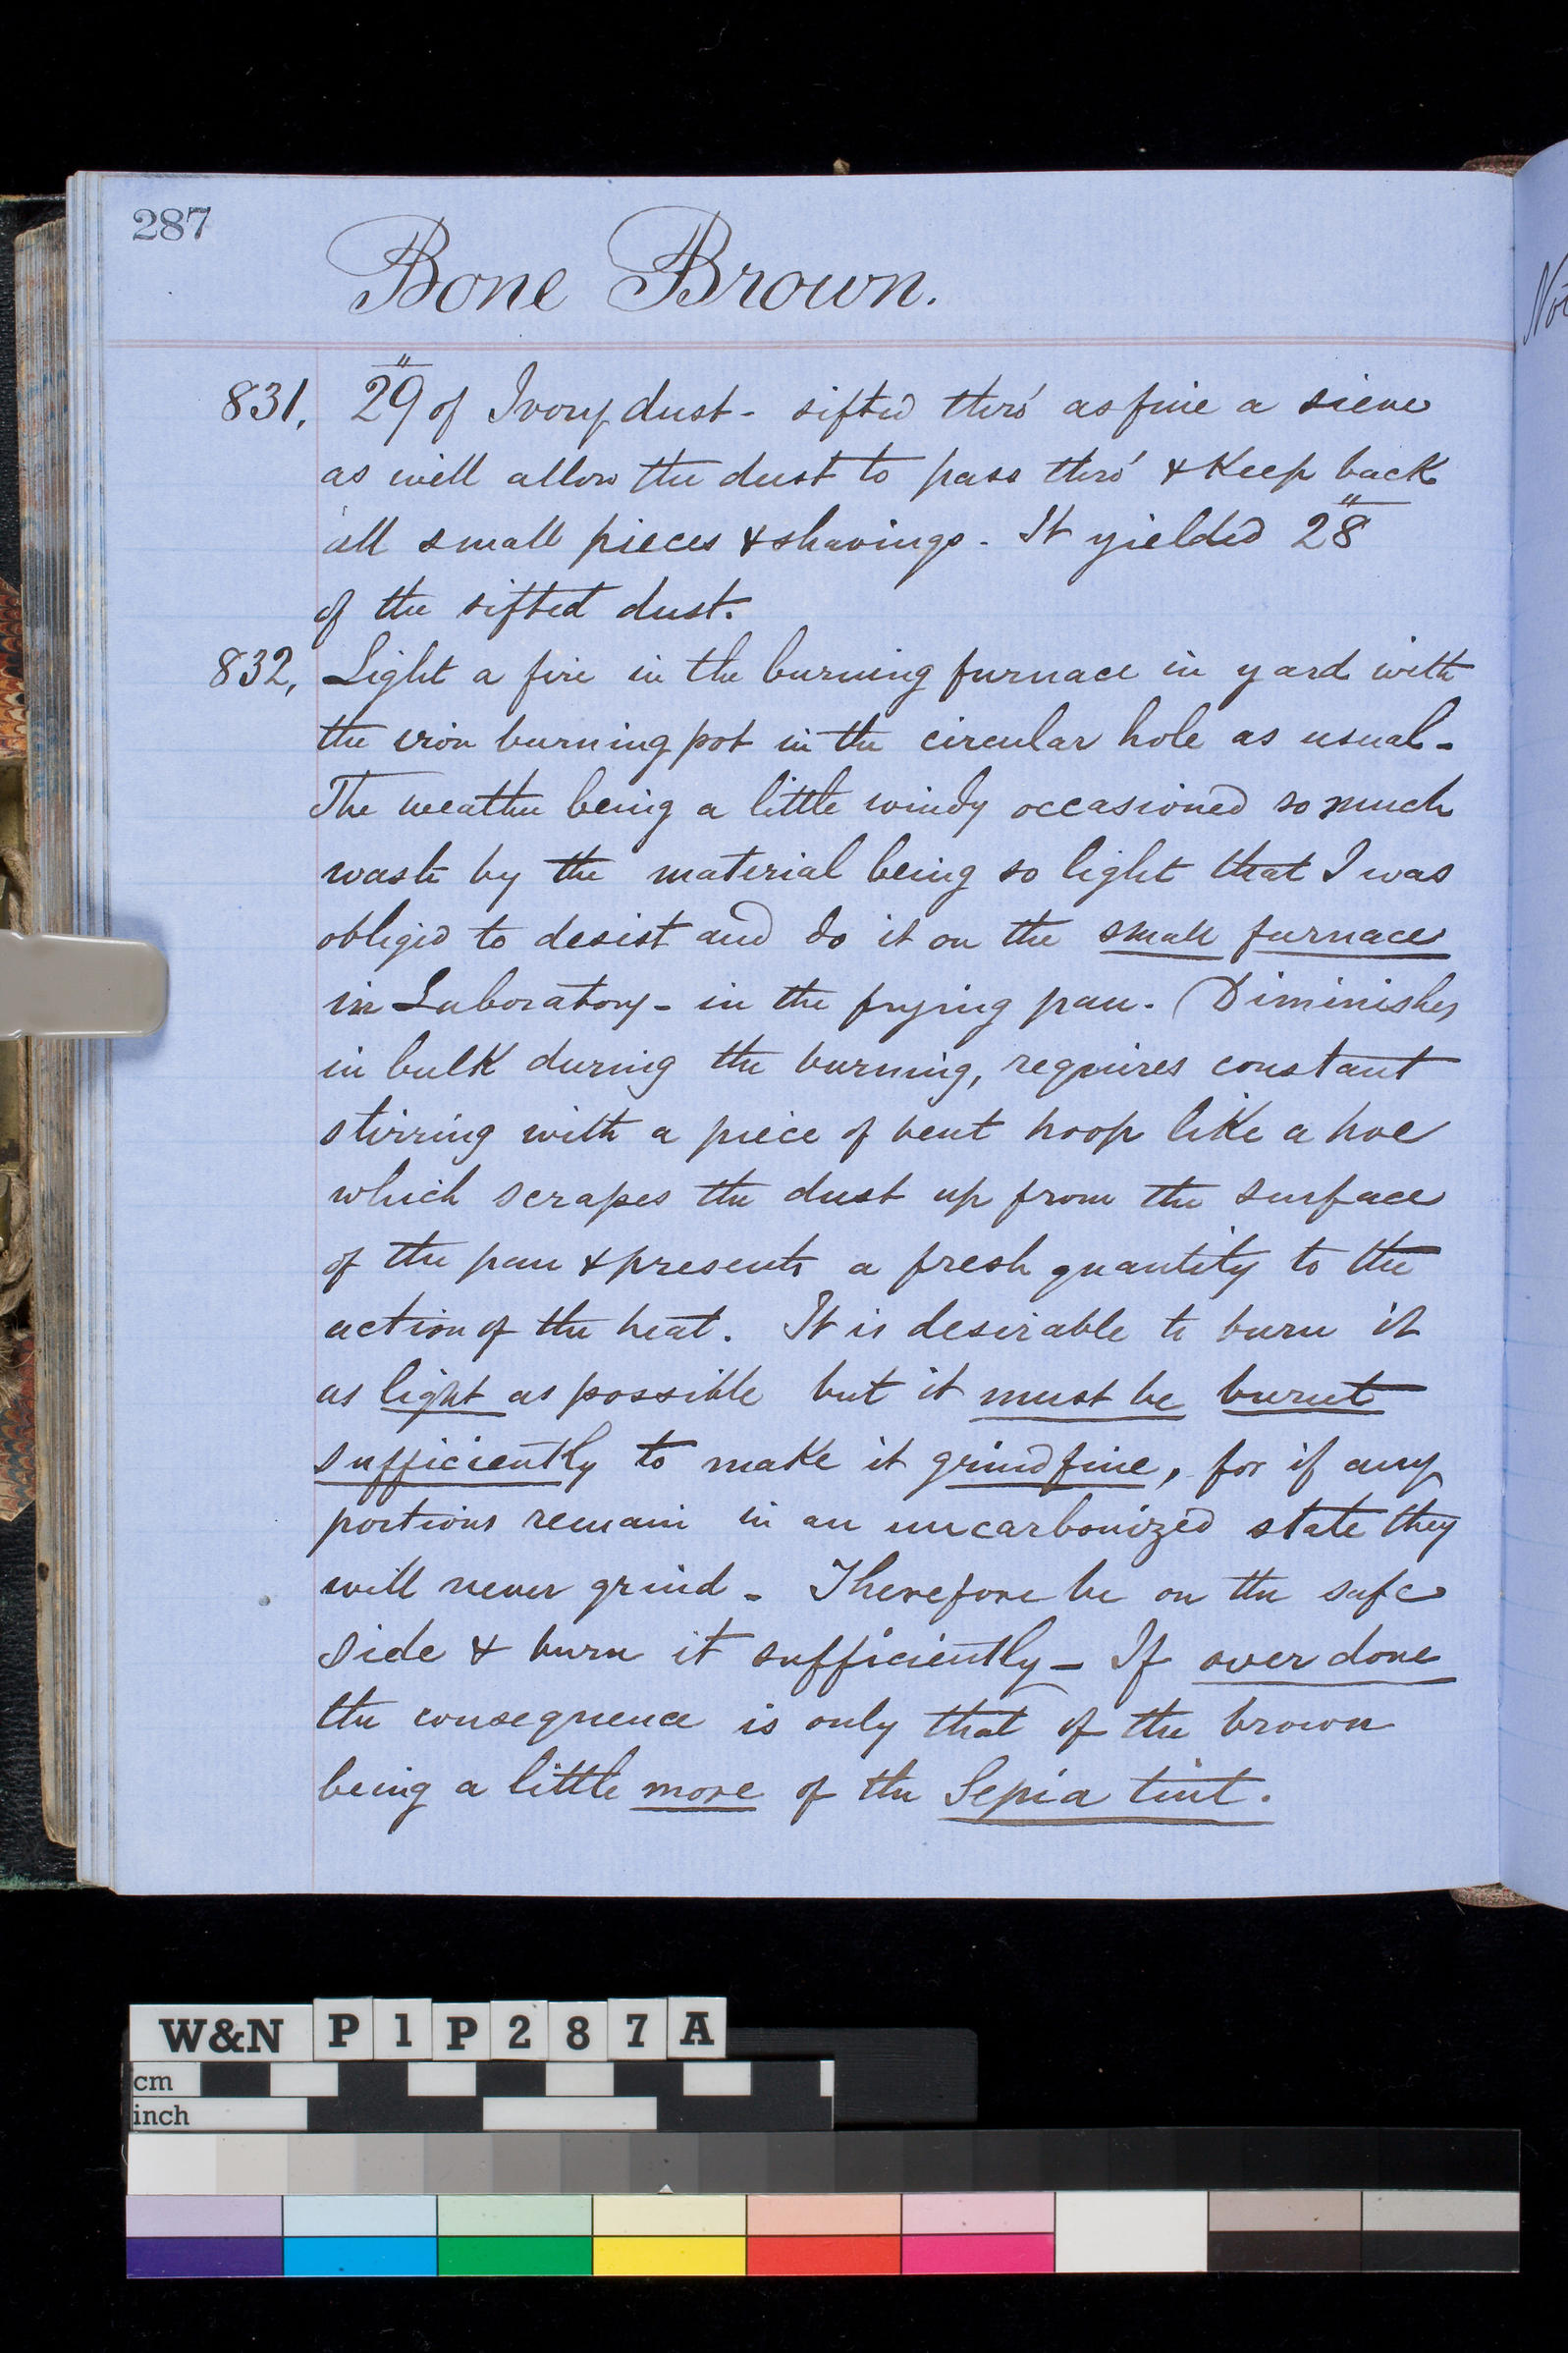 287
Bone Brown.
831, 29" of Ivory dust - sifted thro' as fine a sieve
as will allow the dust to pass thro' & Keep back
all small pieces & shavings - It yielded 28"
of the sifted dust.
832, Light a fire in the burning furnace in yard with
the iron burning pot in the circular hole as usual -
The weather being a little windy occasioned so much
waste by the material being so light that I was
obliged to desist and do it on the small furnace
in Laboratory - in the frying pan. (Diminishes
in bulk during the burning, requires constant
stirring with a piece of bent hoop like a hoe
which scrapes the dust up from the surface
of the pan & presents a fresh quantity to the
action of the heat. It is desirable to burn it
as light as possible but it must be burnt
sufficiently to make it grind fine, for if any
portions remain in an uncarbonized state they
will never grind - Therefore be on the safe
side & burn it sufficiently - If over done
the consequence is only that of the brown
being a little more of the Sepia tint.
W&N P1P287A
cm
inch